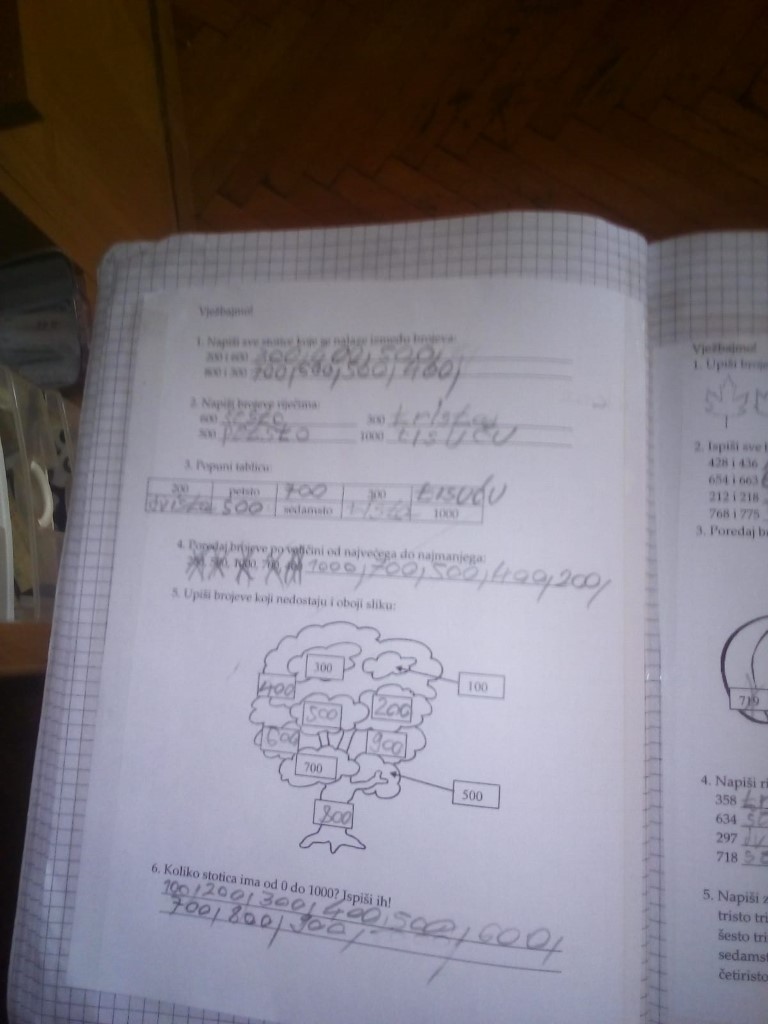 Vježbajmo!
1. Napiši sve stotice koje se nalaze između brojeva:
200 i 600 300, 400, 500,
800 i 300 700, 600, 500, 400,
2. Napiši brojeve riječima:
600 šesto 300 tristo
500 petsto 1000 tisuću
3. Popuni tablicu:
200 petsto 700 300 tisuću
dvisto 500 sedamsto tristo 1000
4. Poredaj brojeve po veličini od najvećega do najmanjega:
1000, 700, 500, 400, 200,
5. Upiši brojeve koji nedostaju i oboji sliku:
300
400
100
500
200
600
900
700
500
800
6. Koliko stotica ima od 0 do 1000? Ispiši ih!
100, 200, 300, 400, 500, 600,
700, 800, 900,
Vježbajmo!
1. Upiši
2. Ispiši sve
428 i 436
654 i 663
212 i 218
768 i 775
3. Poredaj
719
4. Napiši
358
634
297
718
5. Napiši
tristo
šesto
četiristo